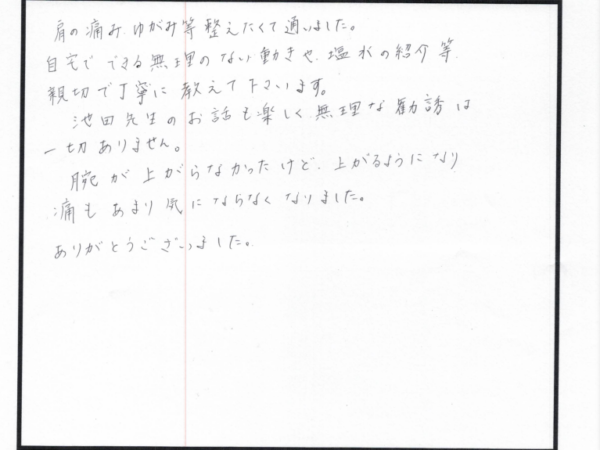 肩の痛みゆがみ等整えたくて通いました。
自宅でできる無理のない動きや、塩水の紹介等
親切で丁寧に教えて下さいます。
池田先生のお話も楽しく無理な勧誘は
一切ありません。
腕が上がらなかったけど、上がるようになり
痛もあまり気にならなくなりました。
ありがとうございました。